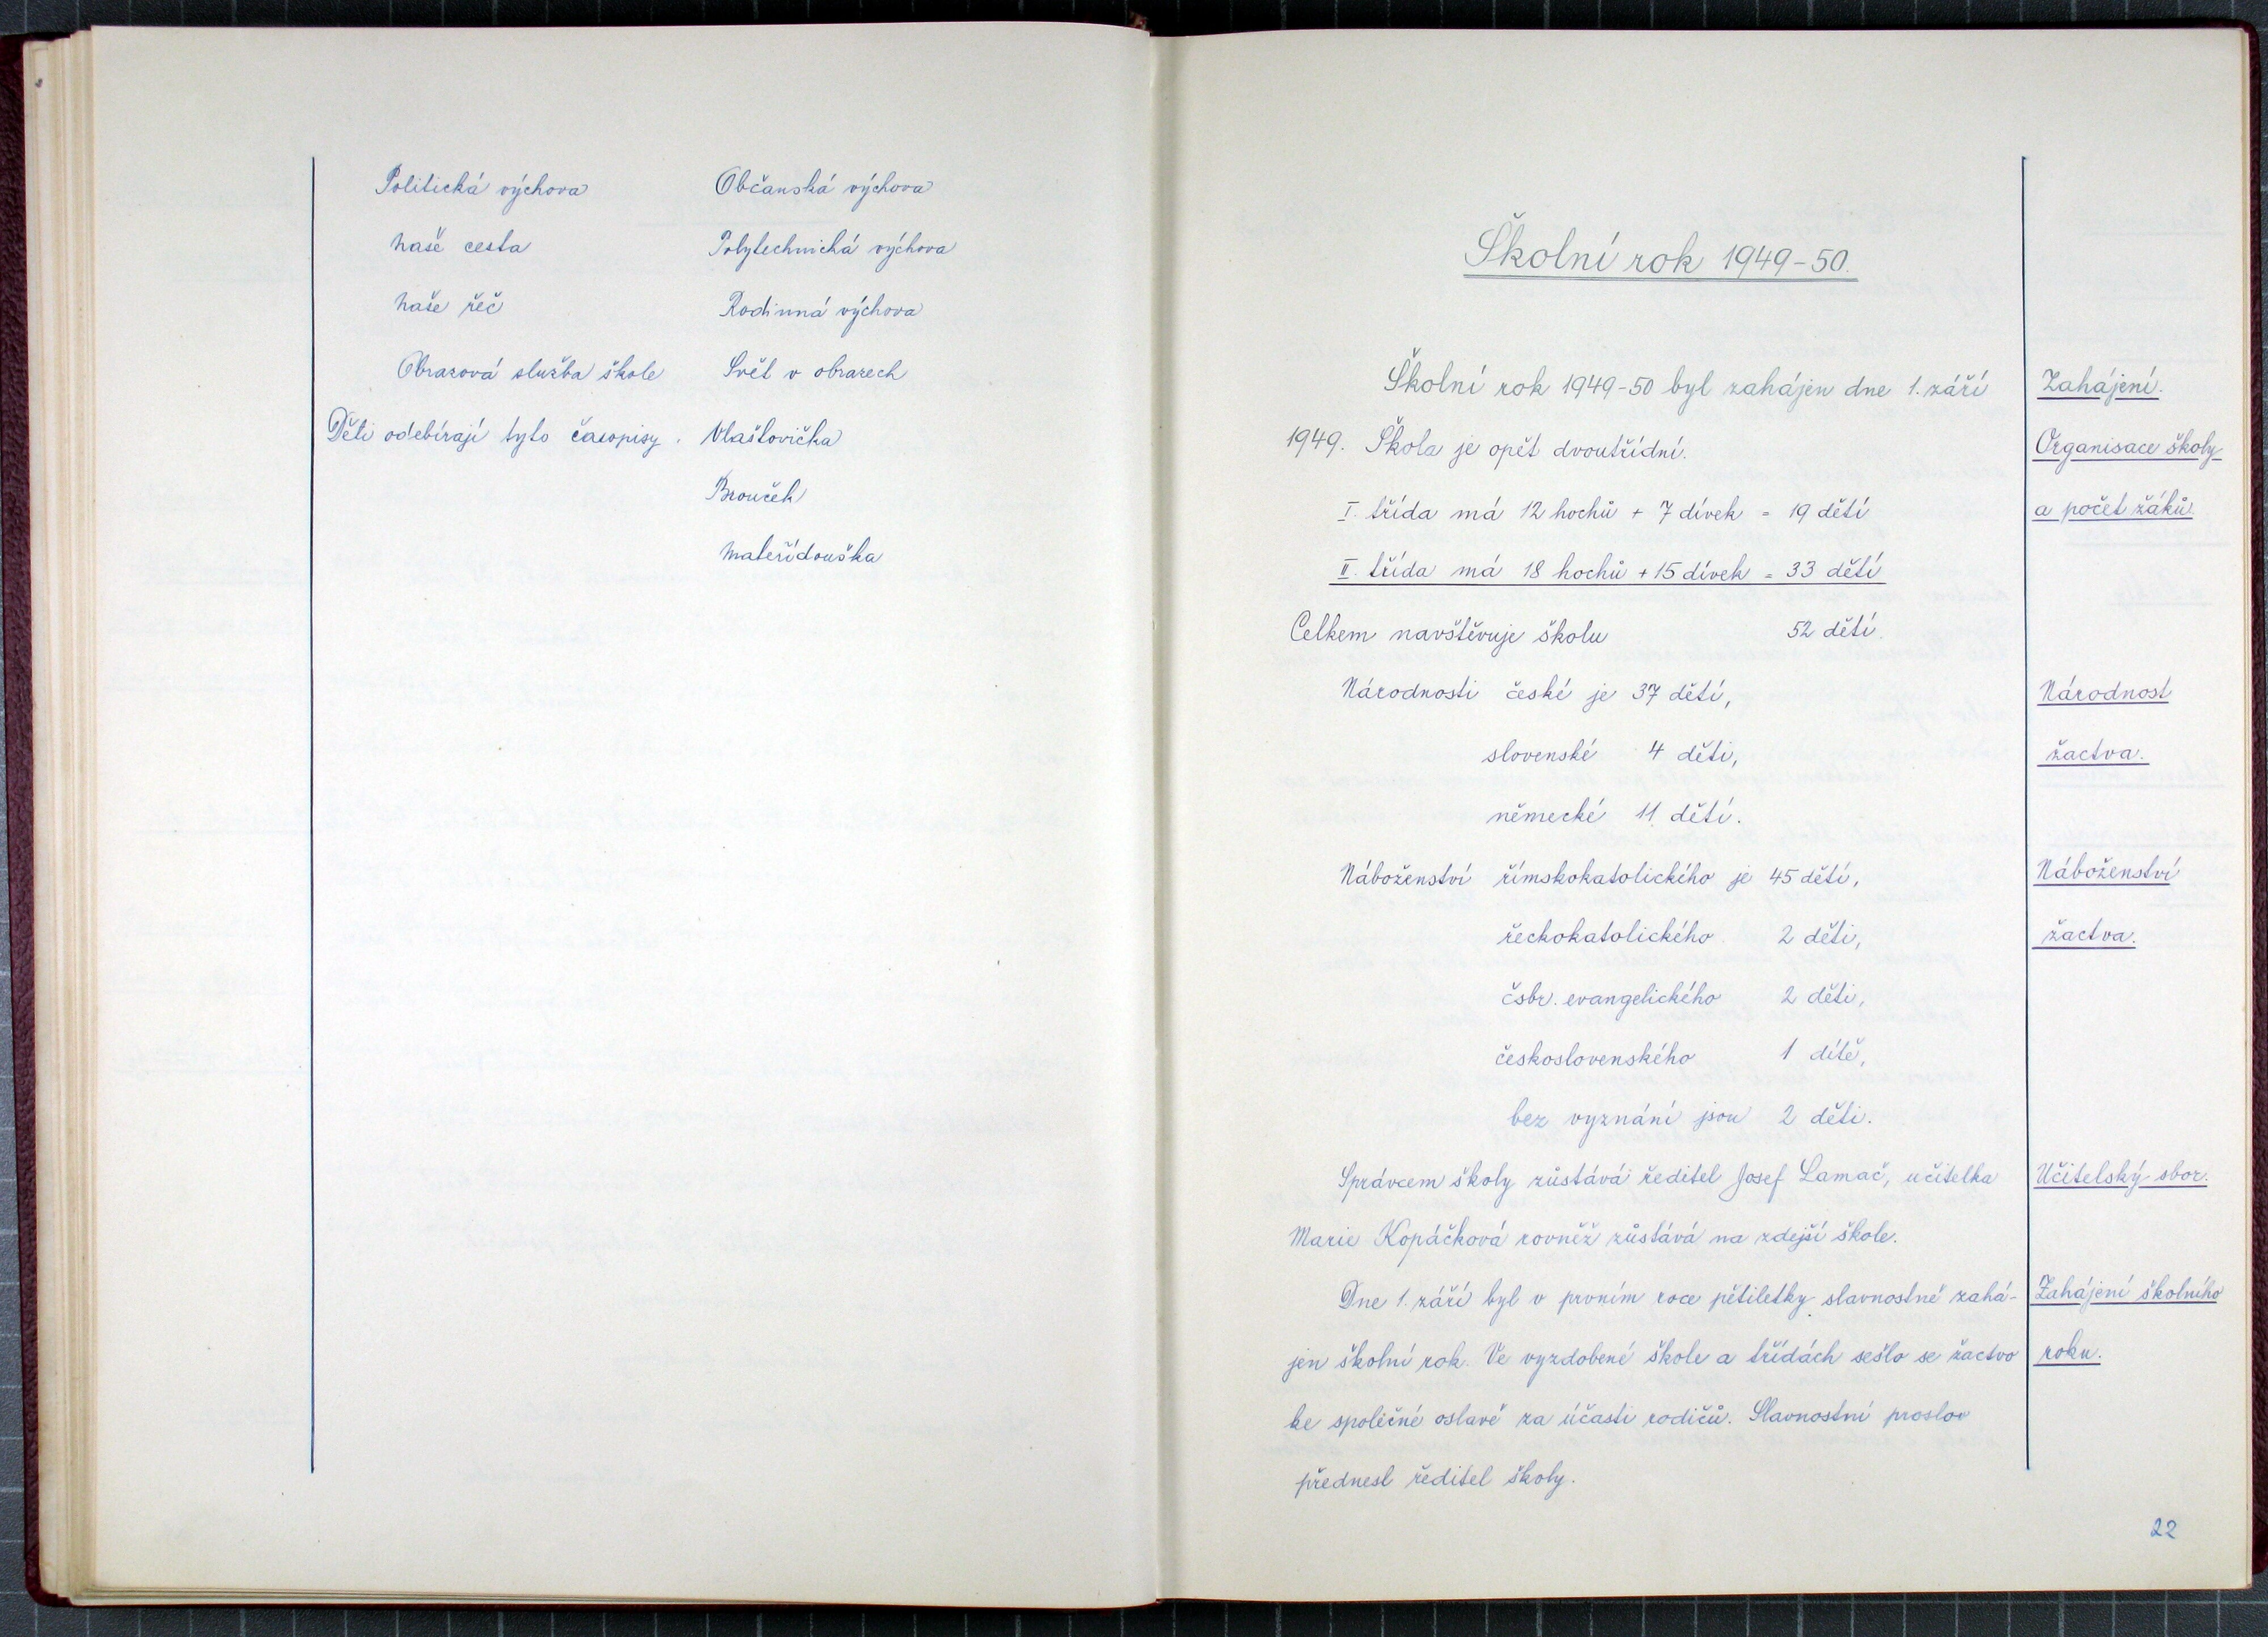 Politická výchova Občanská výchova
Naše cesta Polytechnická výchova
Naše řeč Rodinná výchova
Obrazová služba škole Svět v obrazech
Děti odebírají tyto časopisy. Vlaštovička
Brouček
Mateřídouška
Školní rok 1949-50.
Školní rok 1949-50 byl zahájen dne 1. září Zahájení.
1949. Škola je opět dvoutřídní. Organisace školy
I. třída má 12 hochů + 7 dívek = 19 dětí a počet žáků.
II. třída má 18 hochů + 15 dívek = 33 dětí
Celkem navštěvuje školu 52 dětí.
Národnosti české je 37 dětí, Národnost
slovenské 4 děti, žactva.
německé 11 dětí.
Náboženství římskokatolického je 45 dětí, Náboženství
řeckokatolického 2 děti, žactva.
čsbr. evangelického 2 děti,
československého 1 dítě,
bez vyznání jsou 2 děti.
Správcem školy zůstává ředitel Josef Lamač, učitelka Učitelský sbor.
Marie Kopáčková rovněž zůstává na zdejší škole.
Dne 1. září byl v prvním roce pětiletky slavnostně zahá- Zahájení školního
jen školní rok. Ve vyzdobené škole a třídách sešlo se žactvo roku.
ke společné oslavě za účasti rodičů. Slavnostní proslov
přednesl ředitel školy.
22